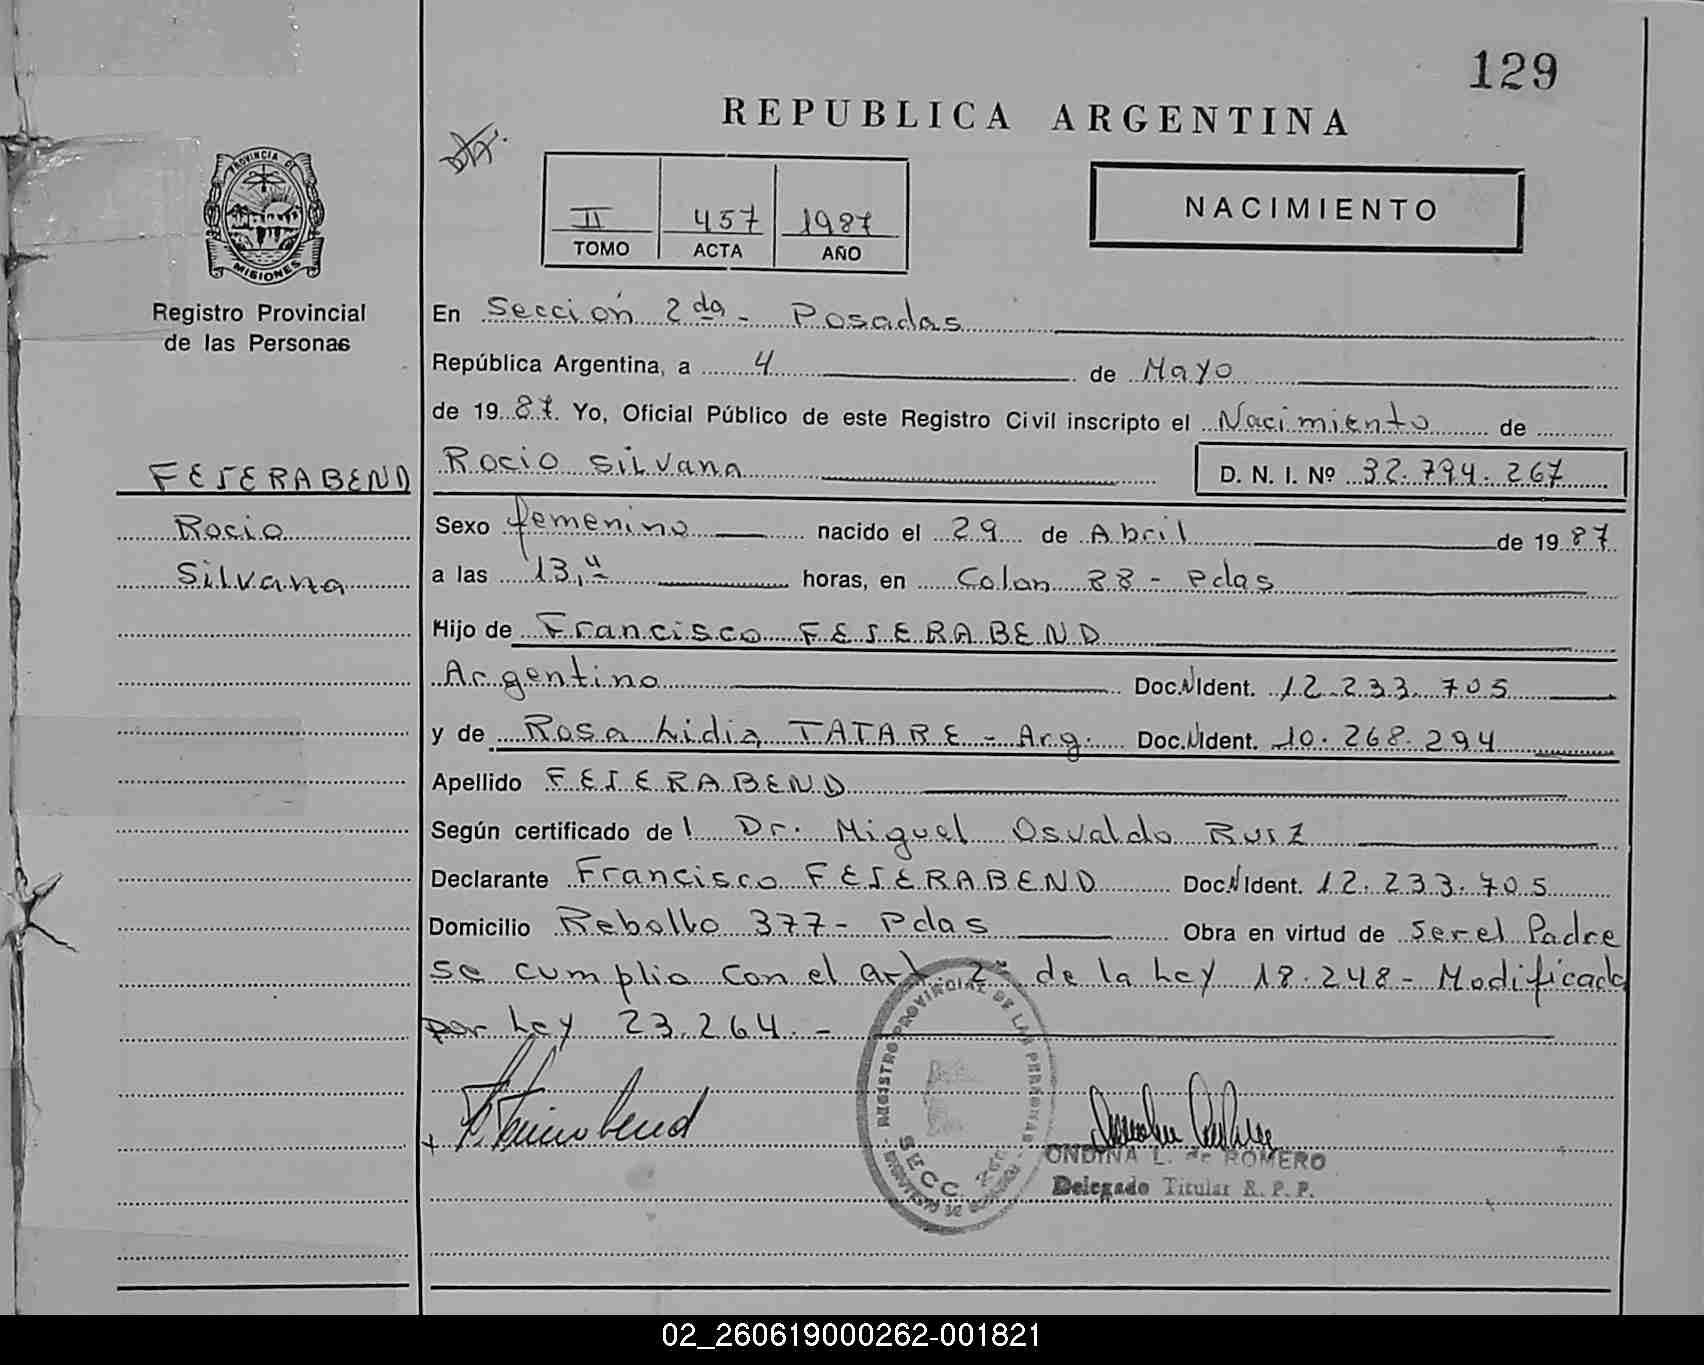 129
REPUBLICA ARGENTINA
PROVINCIA DE
MISIONES
Registro Provincial
de las Personas
II 457 1987
TOMO ACTA AÑO
NACIMIENTO
En Sección 2da - Posadas
República Argentina, a 4 de Mayo
de 19 87 Yo, Oficial Público de este Registro Civil inscripto el Nacimiento de
FESERABEND
Rocio
Silvana
Rocio Silvana D. N. I. Nº 32.794.267
Sexo femenino nacido el 29 de Abril de 19 87
a las 13,4 horas, en Colon 88 - Pdas
Hijo de Francisco FESERABEND
Argentino Doc. Ident. 12.233.705
y de Rosa Lidia TATARE - Arg. Doc. Ident. 10.268.294
Apellido FESERABEND
Según certificado del Dr. Miguel Osvaldo Ruiz
Declarante Francisco FESERABEND Doc. Ident. 12.233.705
Domicilio Rebollo 377 - Pdas Obra en virtud de Ser el Padre
Se cumplio con el art. 2º de la Ley 18.248 - Modificada
por Ley 23.264. -
REGISTRO PROVINCIAL DE LAS PERSONAS
SECC. 2da
ONDINA L. de ROMERO
Delegado Titular R. P. P.
02_260619000262-001821